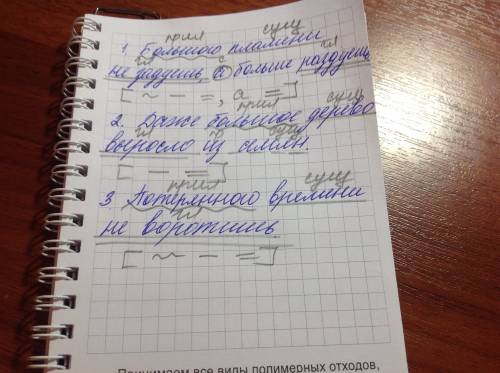 прил сущ
1. Большого пламени
гл с гл
не задуешь, а больше раздуешь
[ ~ – =, а = ]
прил сущ
2. Даже большое дерево
гл пр сущ
выросло из семян.
[ – = ]
прил сущ
3 Потерянного времени
гл
не воротишь
[ ~ – = ]
Принимаем все виды полимерных отходов,